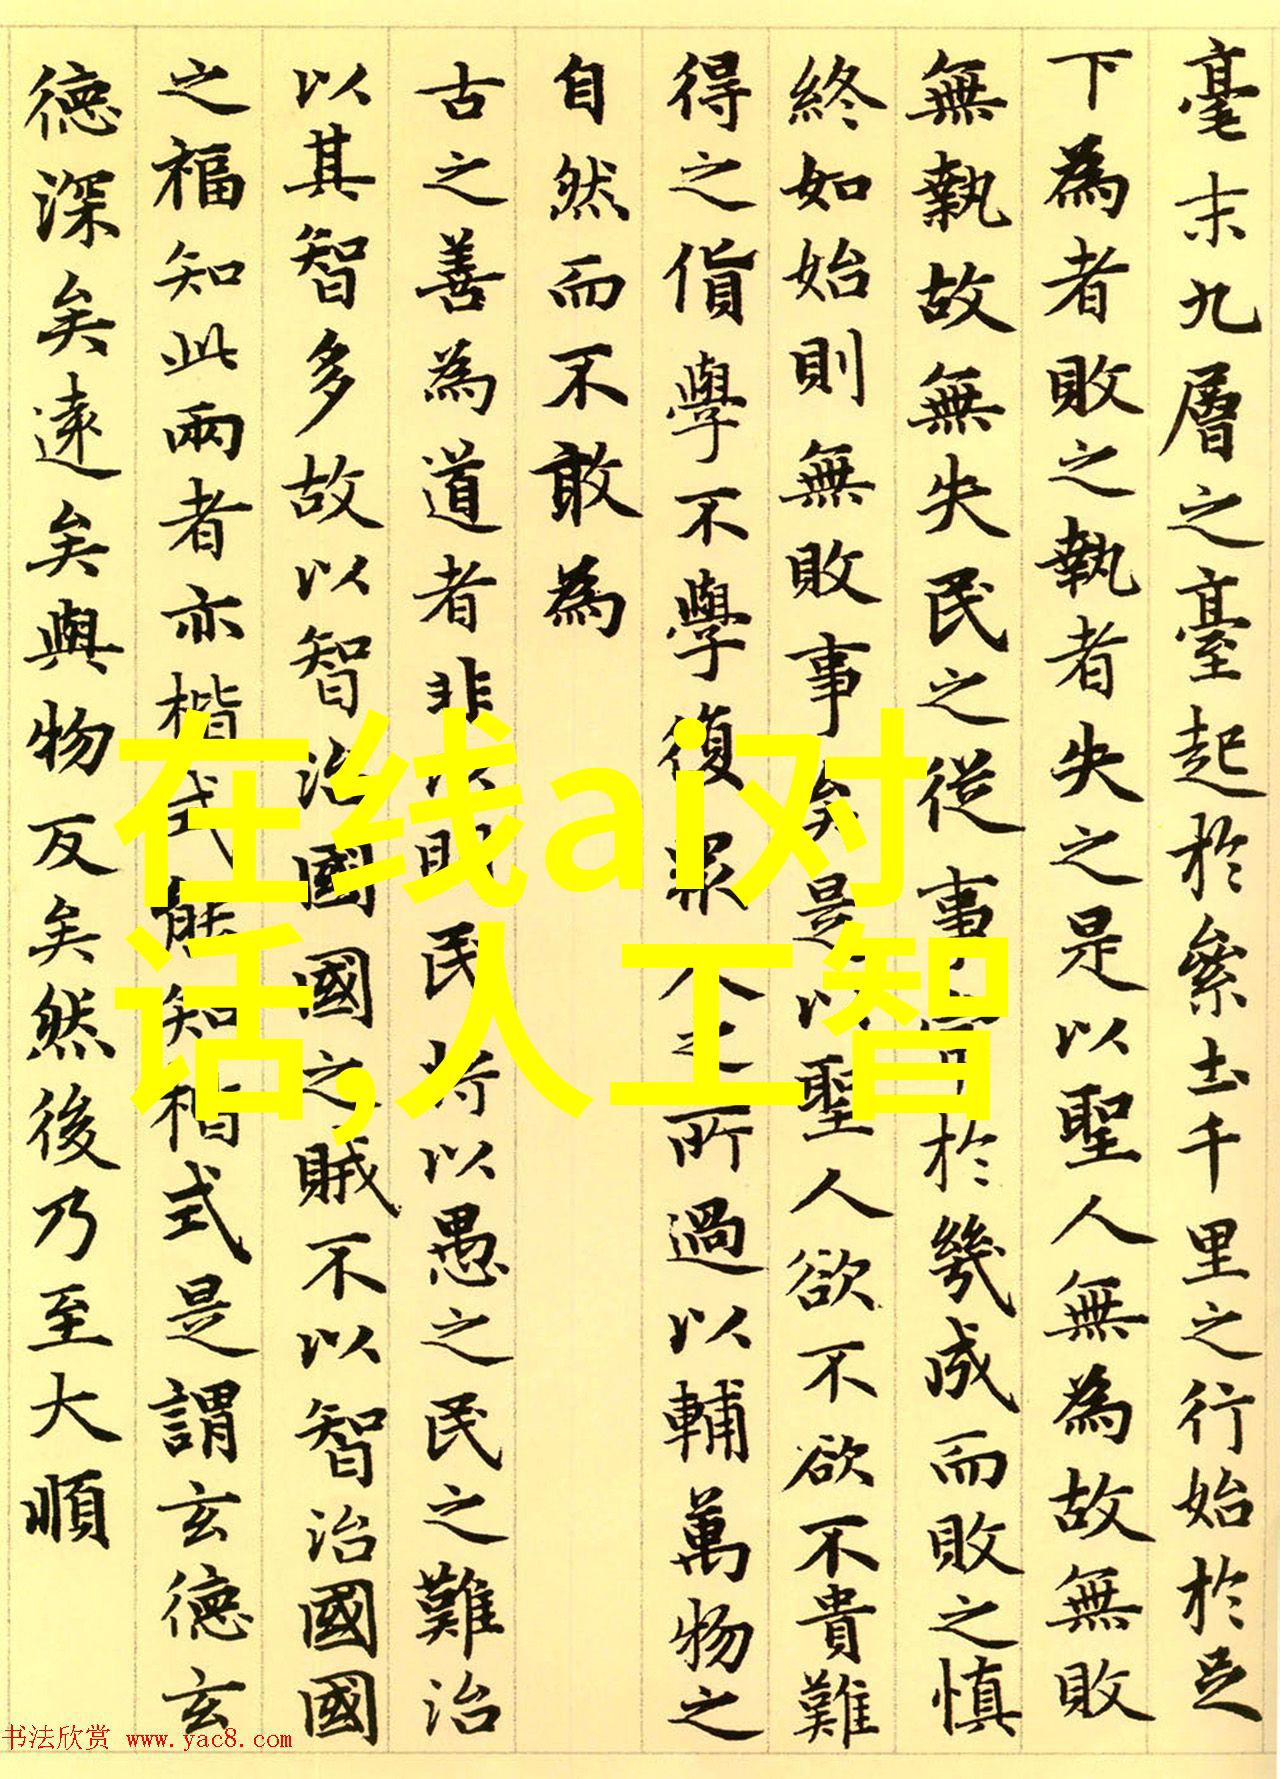 毫末九層之臺起於絫土千里之行始於足
下為者敗之執者失之是以聖人無為故無敗
無執故無失民之從事於幾成而敗之慎
終如始則無敗事矣是以聖人欲不欲不貴難
得之貨學不學復眾人之所過以輔萬物之
自然而不敢為
古之善為道者非以明民將以愚之民之難治
以其智多故以智治國國之賊不以智治國國
之福知此兩者亦楷式能知楷式是謂玄德玄
德深矣遠矣與物反矣然後乃至大順
在线ai对
话,人工智
书法欣赏 www.yac8.com